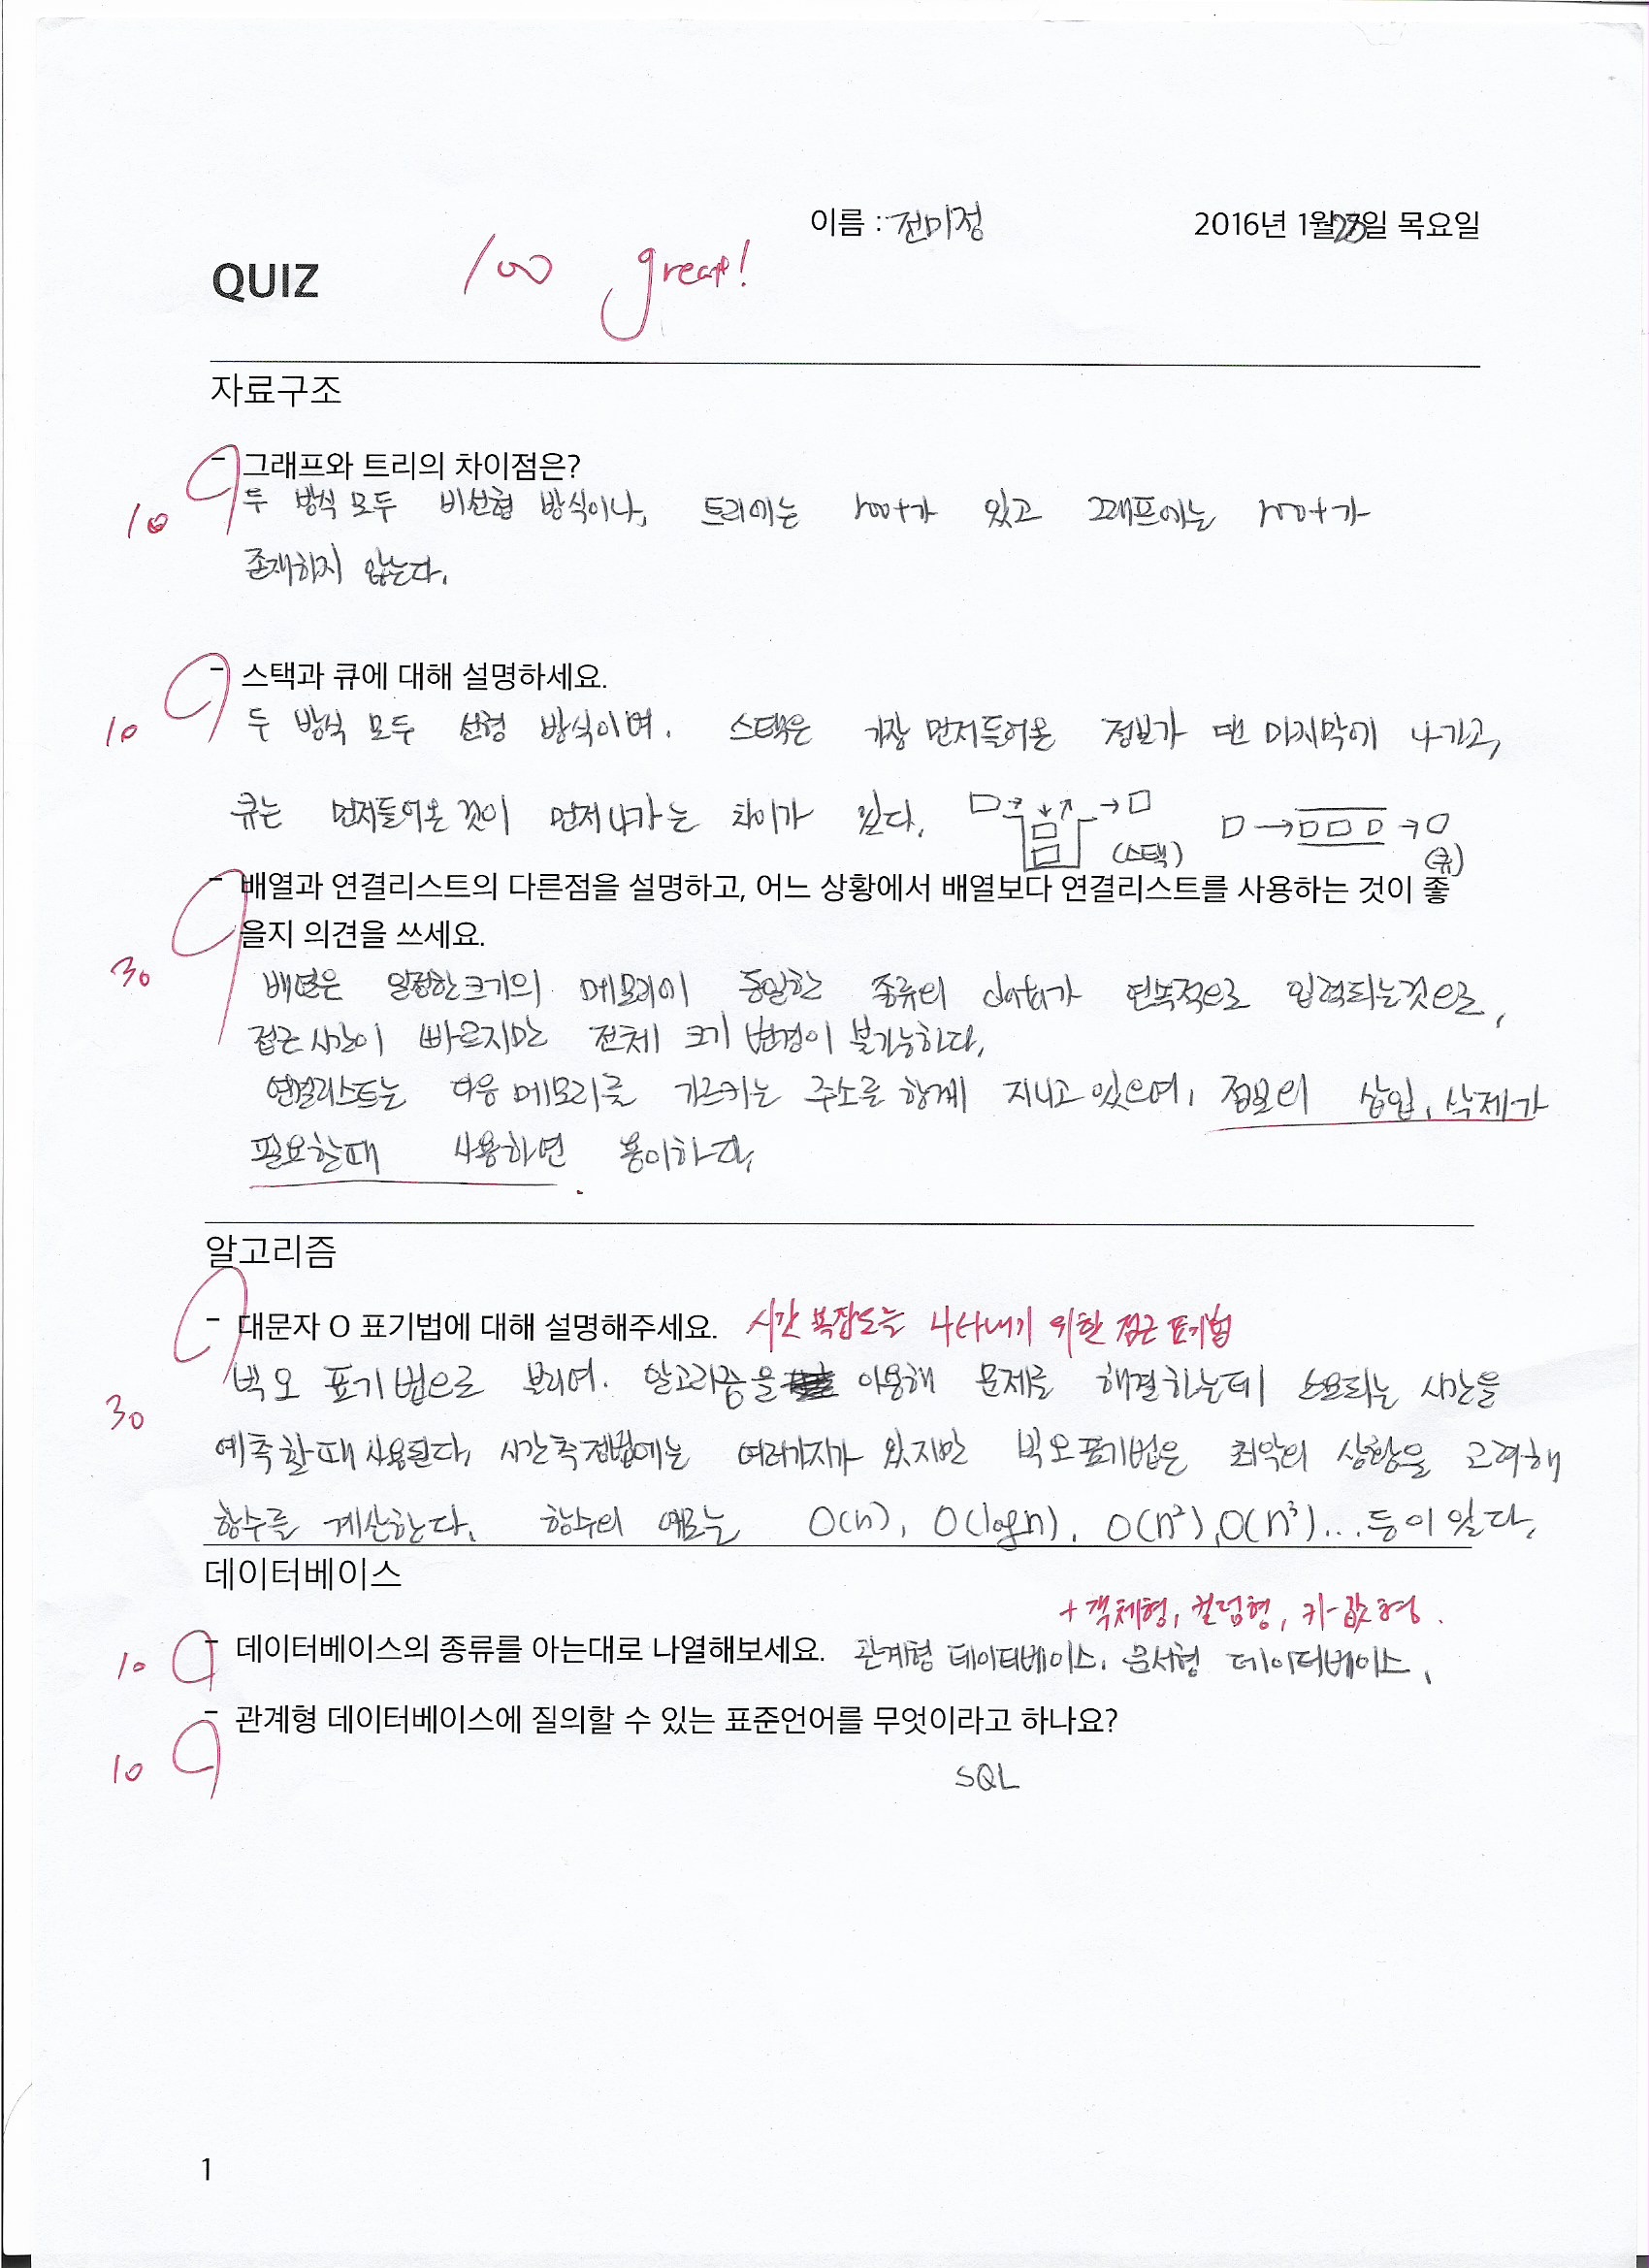 이름 : 전미정
2016년 1월 28일 목요일
QUIZ
100 great!
자료구조
- 그래프와 트리의 차이점은?
10
두 방식 모두 비선형 방식이나, 트리에는 root가 있고 그래프에는 root가
존재하지 않는다.
- 스택과 큐에 대해 설명하세요.
10
두 방식 모두 선형 방식이며, 스택은 가장 먼저들어온 정보가 맨 마지막에 나가고,
큐는 먼저들어온 것이 먼저 나가는 차이가 있다.
(스택) (큐)
- 배열과 연결리스트의 다른점을 설명하고, 어느 상황에서 배열보다 연결리스트를 사용하는 것이 좋
을지 의견을 쓰세요.
30
배열은 일정한크기의 메모리이 동일한 종류의 data가 연속적으로 입력되는것으로,
접근 시간이 빠르지만 전체 크기 변경이 불가능하다.
연결리스트는 다음 메모리를 가르키는 주소를 함께 지니고 있으며, 정보의 삽입, 삭제가
필요할때 사용하면 용이하다.
알고리즘
- 대문자 O 표기법에 대해 설명해주세요. 시간 복잡도를 나타내기 위한 점근 표기법
30
빅 오 표기법으로 불리며. 알고리즘을 이용해 문제를 해결하는데 소요되는 시간을
예측할때 사용된다. 시간측정법에는 여러가지가 있지만 빅오표기법은 최악의 상황을 고려해
함수를 계산한다. 함수의 예로는 O(n), O(logn), O(n²), O(n³)... 등이 있다.
데이터베이스
+ 객체형, 컬럼형, 키-값형.
10
- 데이터베이스의 종류를 아는대로 나열해보세요. 관계형 데이터베이스, 문서형 데이터베이스,
- 관계형 데이터베이스에 질의할 수 있는 표준언어를 무엇이라고 하나요?
10
SQL
1